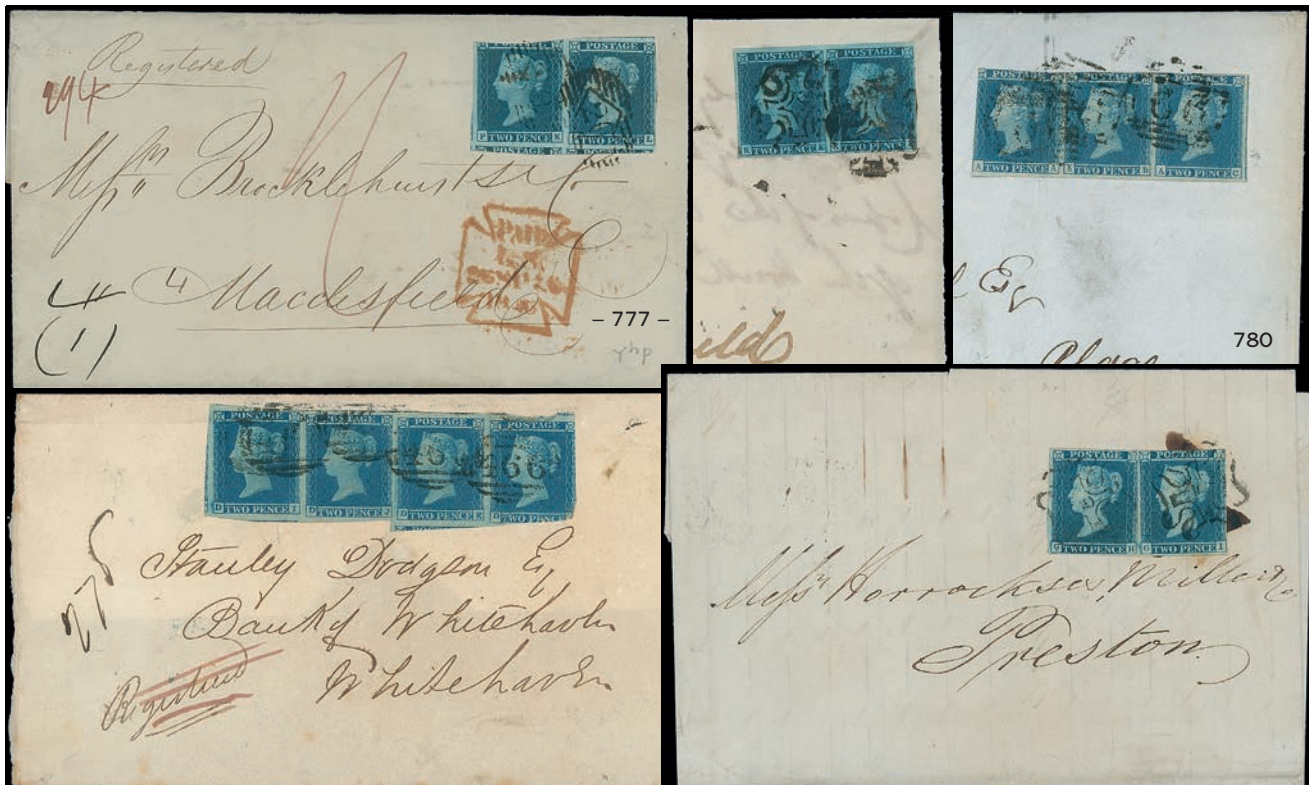 Registered
294
POSTAGE
TWO PENCE TWO PENCE
Messrs Brocklehurst & Co
Macclesfield
PAID
4
(1)
– 777 –
POSTAGE
TWO PENCE TWO PENCE
TWO PENCE TWO PENCE TWO PENCE
A A A B A C
Esq
Place
780
POSTAGE POSTAGE POSTAGE POSTAGE
466
D I D J D K D
TWO PENCE TWO PENCE TWO PENCE TWO PENCE
Stanley Dodgson Esq
Bank of Whitehaven
Whitehaven
Registered
278
POSTAGE POSTAGE
G H G I
TWO PENCE TWO PENCE
Messrs Horrockses, Miller & Co
Preston